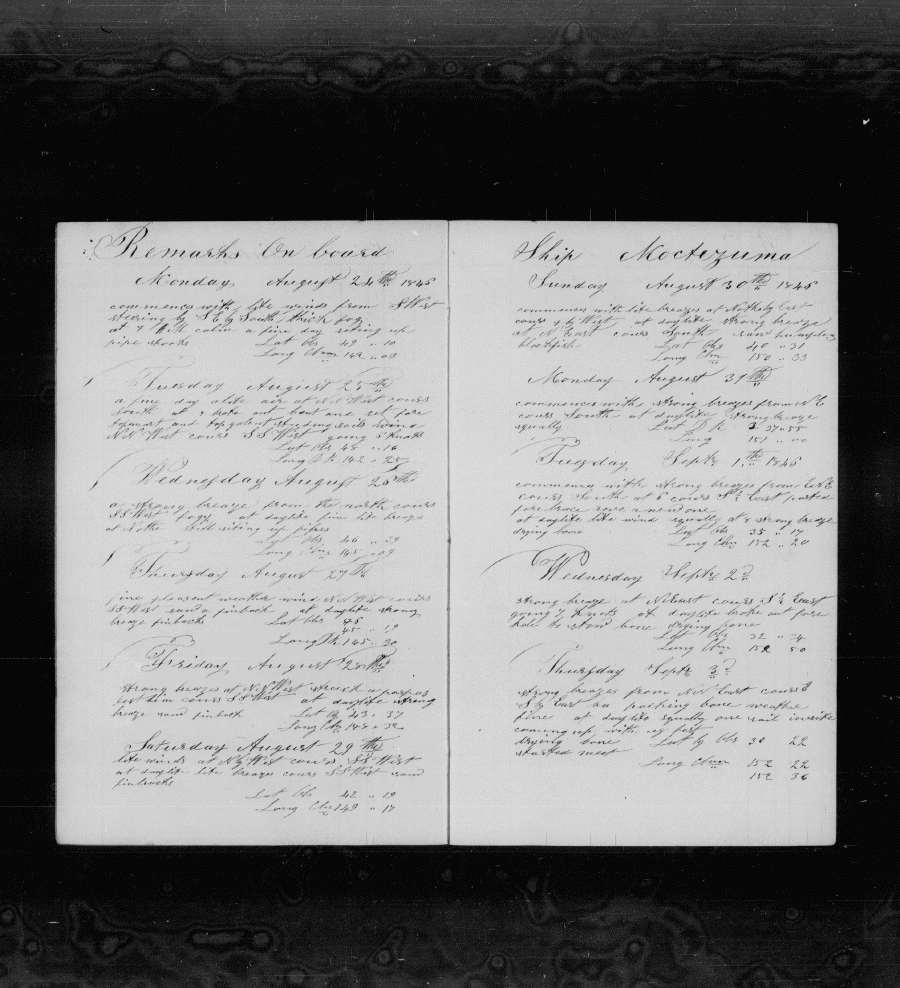 Remarks On board
Monday August 24th 1846
commences with lite winds from S West
steering by S E by South thick fog
at 7 AM calm a fine day seting up
pipe stooks Lat Obs 49 " 10
Long Chrn 142 " 03
Tuesday August 25th
a fine day a lite air at N N West cours
South at 8 broke out bout one set fore
topmast and topgalent studingsails wind
N N West cours S S West going 5 knots
Lat Obs 48 " 16
Long D R 142 " 25
Wednesday August 26th
a strong breaze from the north cours
S S West fogy at daylite fine lite breaze
at North still seting up pipes
Lat Obs 46 " 39
Long Chrn 145 " 09
Thursday August 27th
fine pleasent weather wind N N West cours
S S West saw a finback at daylite strong
breaze finbacks Lat Obs 45
45 " 19
Long D R 145 " 30
Friday August 28th
strong breazes at N N West struck a porpos
lost him cours S S West at daylite strong
breaze saw finback Lat Ob 43 " 37
Long Chr 148 " 32
Saturday August 29th
lite winds at N by West cours S S West
at daylite lite breazes cours S S West saw
finbacks
Lat Obs 42 " 19
Long Chrn 149 " 17
Ship Moctezuma
Sunday August 30th 1846
commences with lite breazes at North by East
cours S by West at daylite strong breaze
at N East cours South saw humpbacks
blackfish Lat Obs 40 " 31
Long Chrn 150 " 33
Monday August 31th
commences with strong breazes from N E
cours South at daylite strong breaze
squally Lat D R 37 " 55
Long 151 " 00
Tuesday Septr 1th 1846
commences with strong breazes from E N E
cours South at 6 cours S 1/2 East parted
fore brace rove a new one
at daylite lite wind squally at 8 strong breaze
drying bone Lat Obs 35 " 17
Long Chrn 152 " 20
Wednesday Septr 2d
strong breaze at N East cours S 1/2 East
going 7 knots at daylite broke out fore
hole to stow bone drying bone
Lat Obs 32 " 34
Long Chrn 152 50
Thursday Septr 3d
strong breazes from N N East cours
S 1/2 East packing bone weather
fine at daylite squally one sail in site
coming up with us fast
drying bone Lat by Obs 30 22
started meat
Long Chrn 152 22
152 36